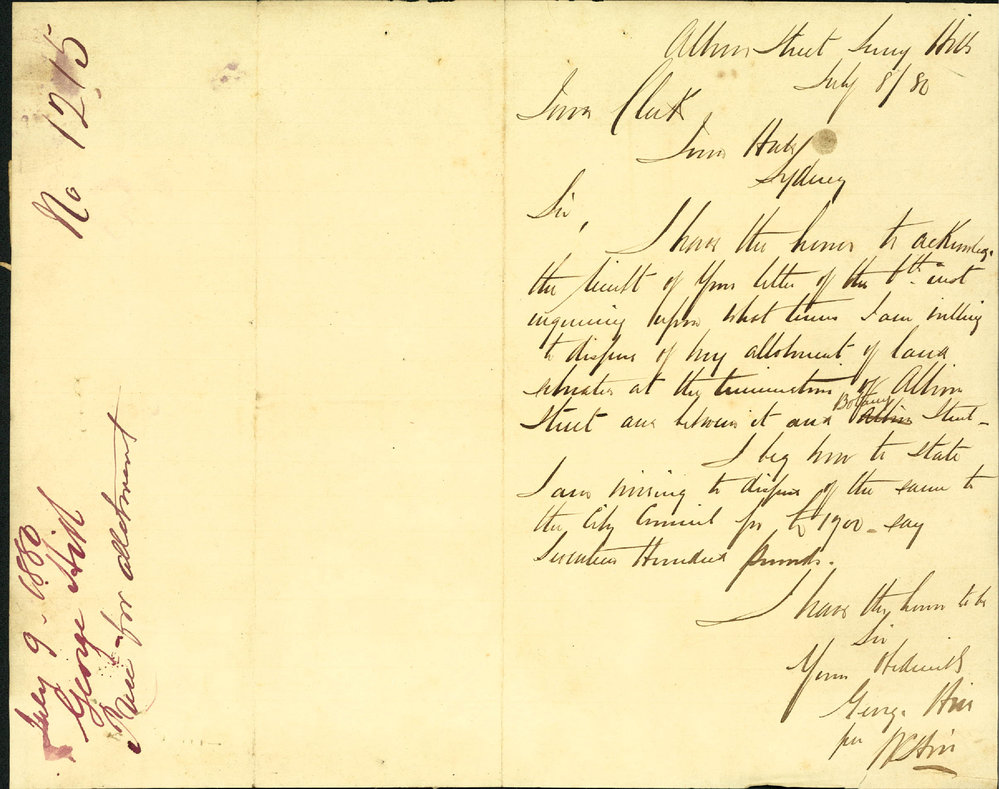 No 1215
July 9 - 1880
George Hill
Price for allotment
Albion Street Surry Hills
July 8/80
Town Clerk
Town Hall
Sydney
Sir,
I have the honor to acknowledge
the receipt of your letter of the 6th inst
inquiring upon what terms I am willing
to dispose of my allotment of land
situates at the termination of Albion
Street and between it and Botany Albion Street_
I beg now to state
I am willing to dispose of the same to
the City Council for £1700_ say
Seventeen Hundred pounds.
I have the honor to be
Sir
Yours Obediently
George Hill
per